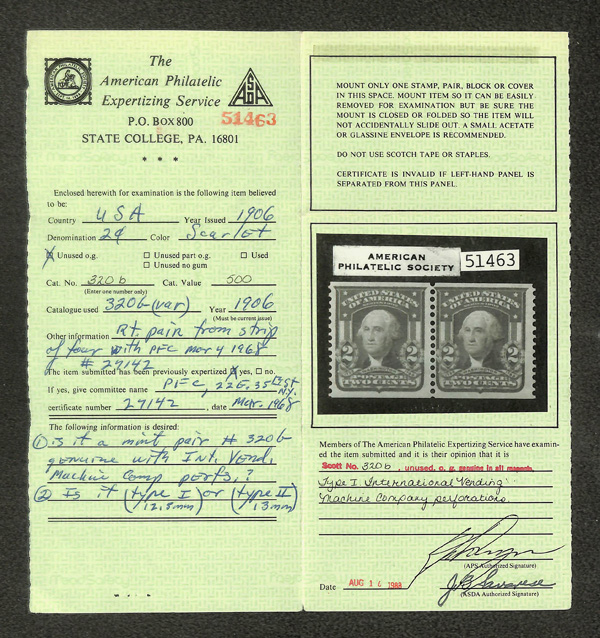 The
American Philatelic
Expertizing Service
P.O. BOX 800
STATE COLLEGE, PA. 16801
* * *
ASDA
51463
Enclosed herewith for examination is the following item believed
to be:
Country USA Year Issued 1906
Denomination 2¢ Color Scarlet
☒ Unused o.g. ☐ Unused part o.g. ☐ Used
☐ Unused no gum
Cat. No. 320b Cat. Value 500
(Enter one number only)
Catalogue used 320b (var) Year 1906
(Must be current issue)
Other information Rt. pair from strip
of four with PFC Mar 4 1968
# 27142
The item submitted has been previously expertized ☒ yes, ☐ no.
If yes, give committee name PFC, 22 E. 35th St NY.
certificate number 27142, date Mar. 1968
The following information is desired:
① is it a mint pair # 320b
genuine with Int. Vend.
Machine Comp perfs.?
② Is it (type I) or (type II)
12.5mm 13mm
MOUNT ONLY ONE STAMP, PAIR, BLOCK OR COVER
IN THIS SPACE. MOUNT ITEM SO IT CAN BE EASILY
REMOVED FOR EXAMINATION BUT BE SURE THE
MOUNT IS CLOSED OR FOLDED SO THE ITEM WILL
NOT ACCIDENTALLY SLIDE OUT. A SMALL ACETATE
OR GLASSINE ENVELOPE IS RECOMMENDED.
DO NOT USE SCOTCH TAPE OR STAPLES.
CERTIFICATE IS INVALID IF LEFT-HAND PANEL IS
SEPARATED FROM THIS PANEL.
AMERICAN
PHILATELIC SOCIETY 51463
UNITED STATES OF AMERICA
2 2
POSTAGE
TWO CENTS
UNITED STATES OF AMERICA
2 2
POSTAGE
TWO CENTS
Members of The American Philatelic Expertizing Service have examin-
ed the item submitted and it is their opinion that it is
Scott No. 320b, unused, o. g. genuine in all respects,
Type I International Vending
Machine Company perforations.
(APS Authorized Signature)
Date AUG 16 1988
(ASDA Authorized Signature)